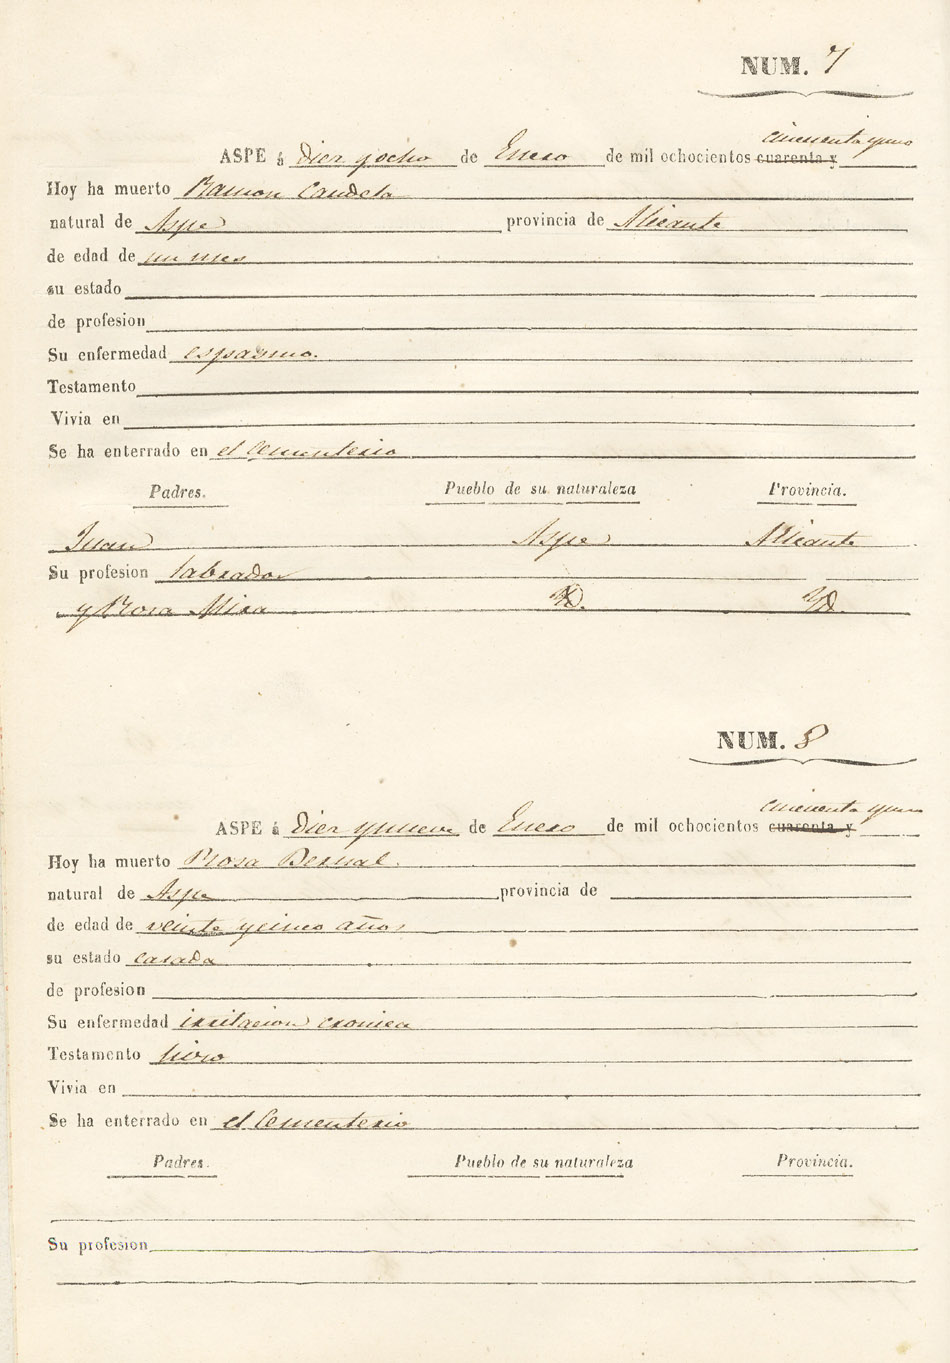 NUM. 7
cincuenta y uno
ASPE á diez y ocho de Enero de mil ochocientos cuarenta y
Hoy ha muerto Ramon Candela
natural de Aspe provincia de Alicante
de edad de un mes
su estado
de profesion
Su enfermedad espasmo.
Testamento
Vivia en
Se ha enterrado en el Cementerio
Padres. Pueblo de su naturaleza Provincia.
Juan Aspe Alicante
Su profesion labrador
y Rosa Mira Yd. Yd.
NUM. 8
cincuenta y uno
ASPE á diez y nueve de Enero de mil ochocientos cuarenta y
Hoy ha muerto Rosa Bernal.
natural de Aspe provincia de
de edad de veinte y cinco años
su estado casada
de profesion
Su enfermedad irritacion cronica
Testamento hizo
Vivia en
Se ha enterrado en el Cementerio
Padres. Pueblo de su naturaleza Provincia.
Su profesion